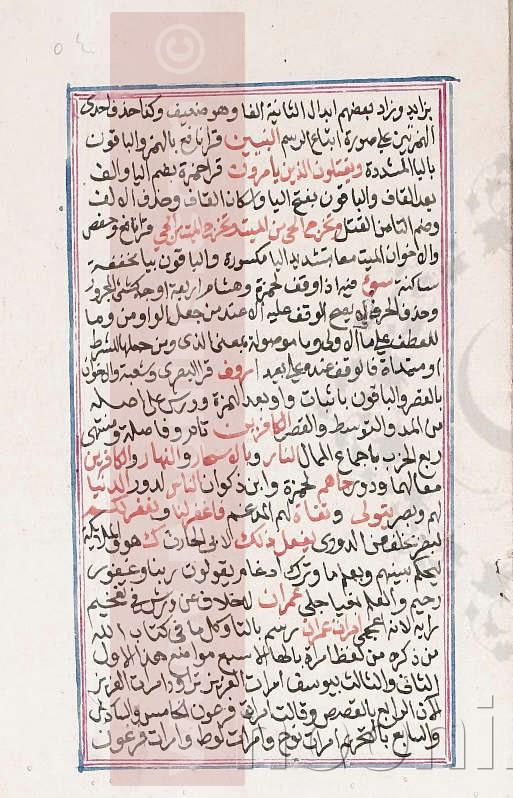 بزايد وزاد بعضهم ابدال الثانية الفا وهو ضعيف وكذا حذف احدى
الهمزتين على صورة اتباع الرسم النبيين قرا نافع بالهمز والباقون
باليا المشددة ويقتلون الذين يامرون قرا حمزة بضم اليا والف
بعد القاف والباقون بفتح اليا واسكان القاف وحذف الالف
وضم التا من القتل وتخرج الحي من الميت وتخرج الميت من الحي قرا نافع وحفص
والاخوان الميت معا بتشديد اليا مكسورة والباقون بيا مخففة
ساكنة سوء فيه اذا وقف لحمزة وهشام اربعة اوجه كشئ المجرور
وحذف الحرف انه يصح الوقف عليه اه عند من جعل الواو من وما
للعطف على ما الاولى وما موصولة بمعنى الذي ومن جعلها للشرط
او مبتداة فالوقف عنده على بعيدا رءوف قرا البصري وشعبة والاخوان
بالقصر والباقون باثبات واو بعد الهمزة وورش على اصله
من المد والتوسط والقصر الكافرين تام وفاصلة ومنتهى
ربع الحزب باجماع الممال الناس وبالاسحار والنهار والكافرين
معا لهما ودوري جاهم لحمزة وابن ذكوان الناس لدور الدنيا
لهم وبصر يتولى وتقاة لهم المدغم فاغفر لنا ويغفر لكم
لبصر بخلف عن الدوري يفعل ذلك لابي الحارث ك هو والملائكة
ليحكم بينهم ويعلم ما وترك ادغام يقولون ربنا وغفور
رحيم والعلم بغيا جلي عمران لا خلاف عن ورش في تفخيم
رايه لانه اعجمي امرات عمران رسم بالتا وكل ما في كتاب الله
من ذكره من لفظ امراة بالها الا سبع مواضع هذا الاول
الثاني والثالث بيوسف امرات العزيز تراود امرات العزيز
الان الرابع بالقصص وقالت امرات فرعون الخامس والسادس
والسابع بالتحريم امرات نوح وامرات لوط وامرات فرعون